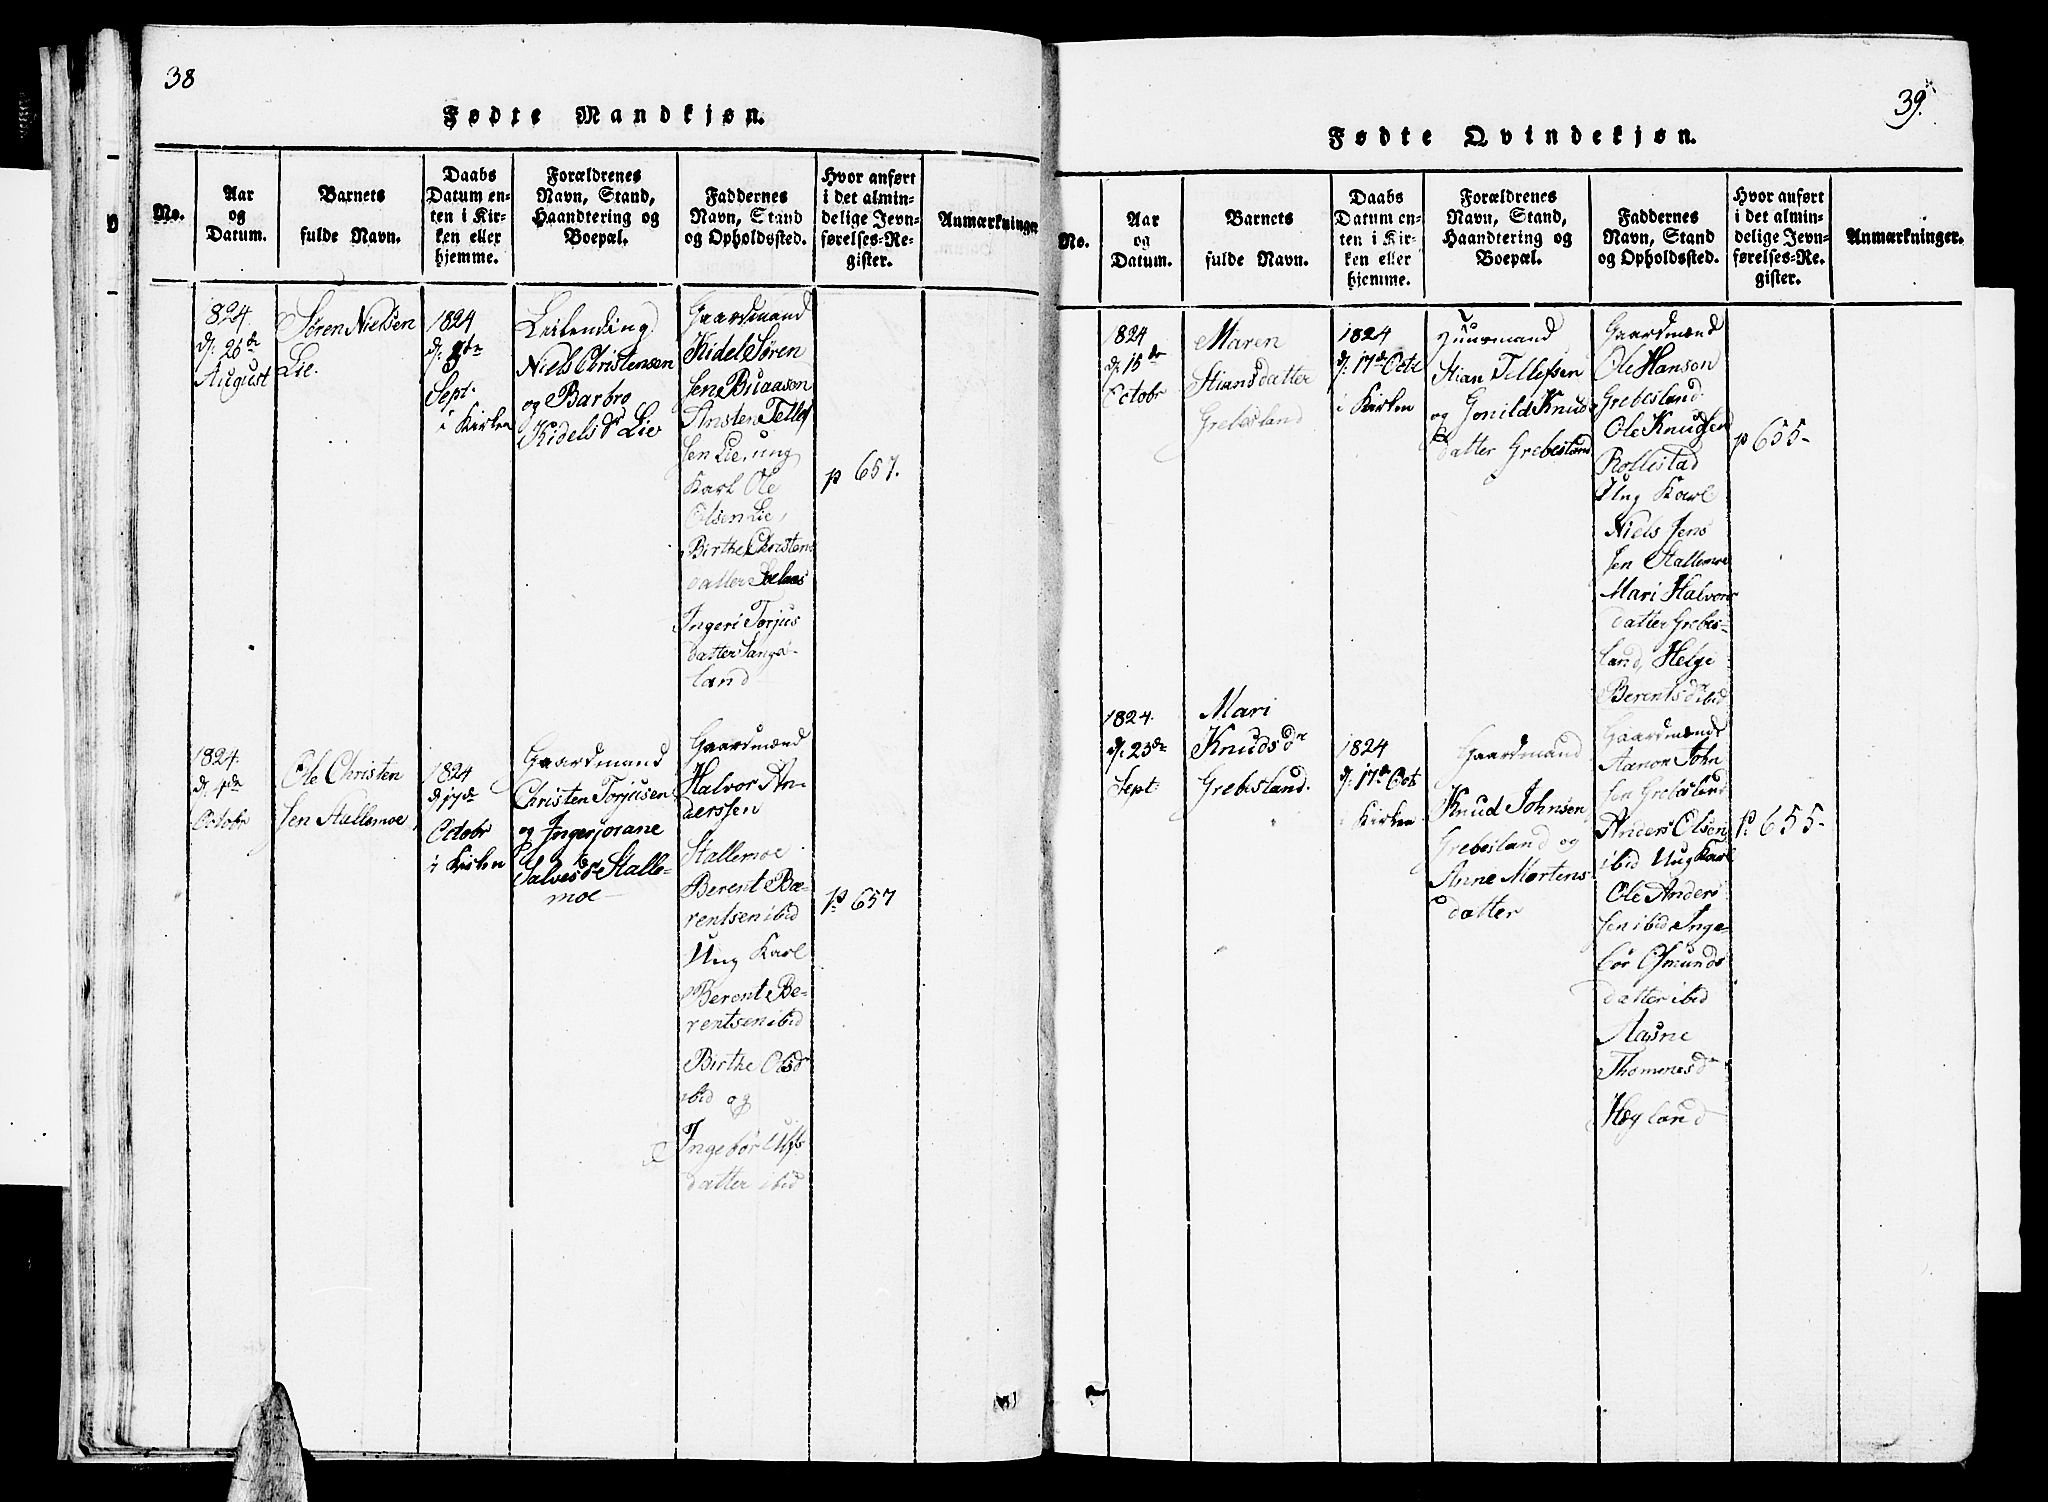 38
Fødte Mandkjøn.
No.
Aar
og
Datum.
Barnets
fulde Navn.
Daabs
Datum en-
ten i Kir-
ken eller
hjemme.
Forældrenes
Navn, Stand,
Haandtering og
Boepæl.
Faddernes
Navn, Stand
og Opholdssted.
Hvor anført
i det almin-
delige Jevn-
førelses-Re-
gister.
Anmærkninger
1824
d. 26de
August
Søren Nielsen
Lie.
1824
Sept.
i Kirken
Leilending
Niels Christensen
og Barbro
Kidelsdr Lie
Gaardmænd
Kidel Søren
sen Buaasen
Ansten Tellef
sen Lie, ung
Karl Ole
Olsen Lie,
Birthe Christens
datter
Ingeri Torjus
datter Lange-
land
p 657.
1824.
October
Ole Christen
sen Stallemoe
1824
d. 17de
Octobr
i Kirken
Gaardmand
Christen Torjusen
og Ingerjorane
Salvesdr Stalle-
moe
Gaardmænd
Halvor An-
derssen
Stallemoe
Berent Be-
rentsen ibid
Ung Karl
Berent Be-
rentsen ibid
Birthe Olsdr
ibid og
Ingebor
datter ibid
p 657
39.
Fødte Qvindekjøn.
No.
Aar
og
Datum.
Barnets
fulde Navn.
Daabs
Datum en-
ten i Kir-
ken eller
hjemme.
Forældrenes
Navn, Stand,
Haandtering og
Boepæl.
Faddernes
Navn, Stand
og Opholdssted.
Hvor anført
i det almin-
delige Jevn-
førelses-Re-
gister.
Anmærkninger.
1824
d. 15de
Octobr
Maren
Stiansdatter
Grebesland
1824
d. 17de Octr
i Kirken
Huusmand
Stian Tellefsen
og Gonild Knuds
datter Grebesland
Gaardmænd
Ole Hanson
Grebesland
Ole Knudsen
Rollestad
Ung Karl
Niels Jens
sen Stallemoe
Mari Halvors
datter Grebes-
land, Helge
Berentsdr ibid
p 655-
1824.
d. 23de
Sept.
Mari
Knudsdr
Grebesland.
1824
d. 17de Oct
i Kirken
Gaardmand
Knud Johnsen
Grebesland og
Anne Mortens
datter
Gaardmænd
Aanon John
sen Grebesland
Anders Olsen
ibid Ung Karl
Ole Anders
sen ibid Inge-
bor Osmunds
datter ibid
Aasne
Thommesdr
Høyland
p 655-